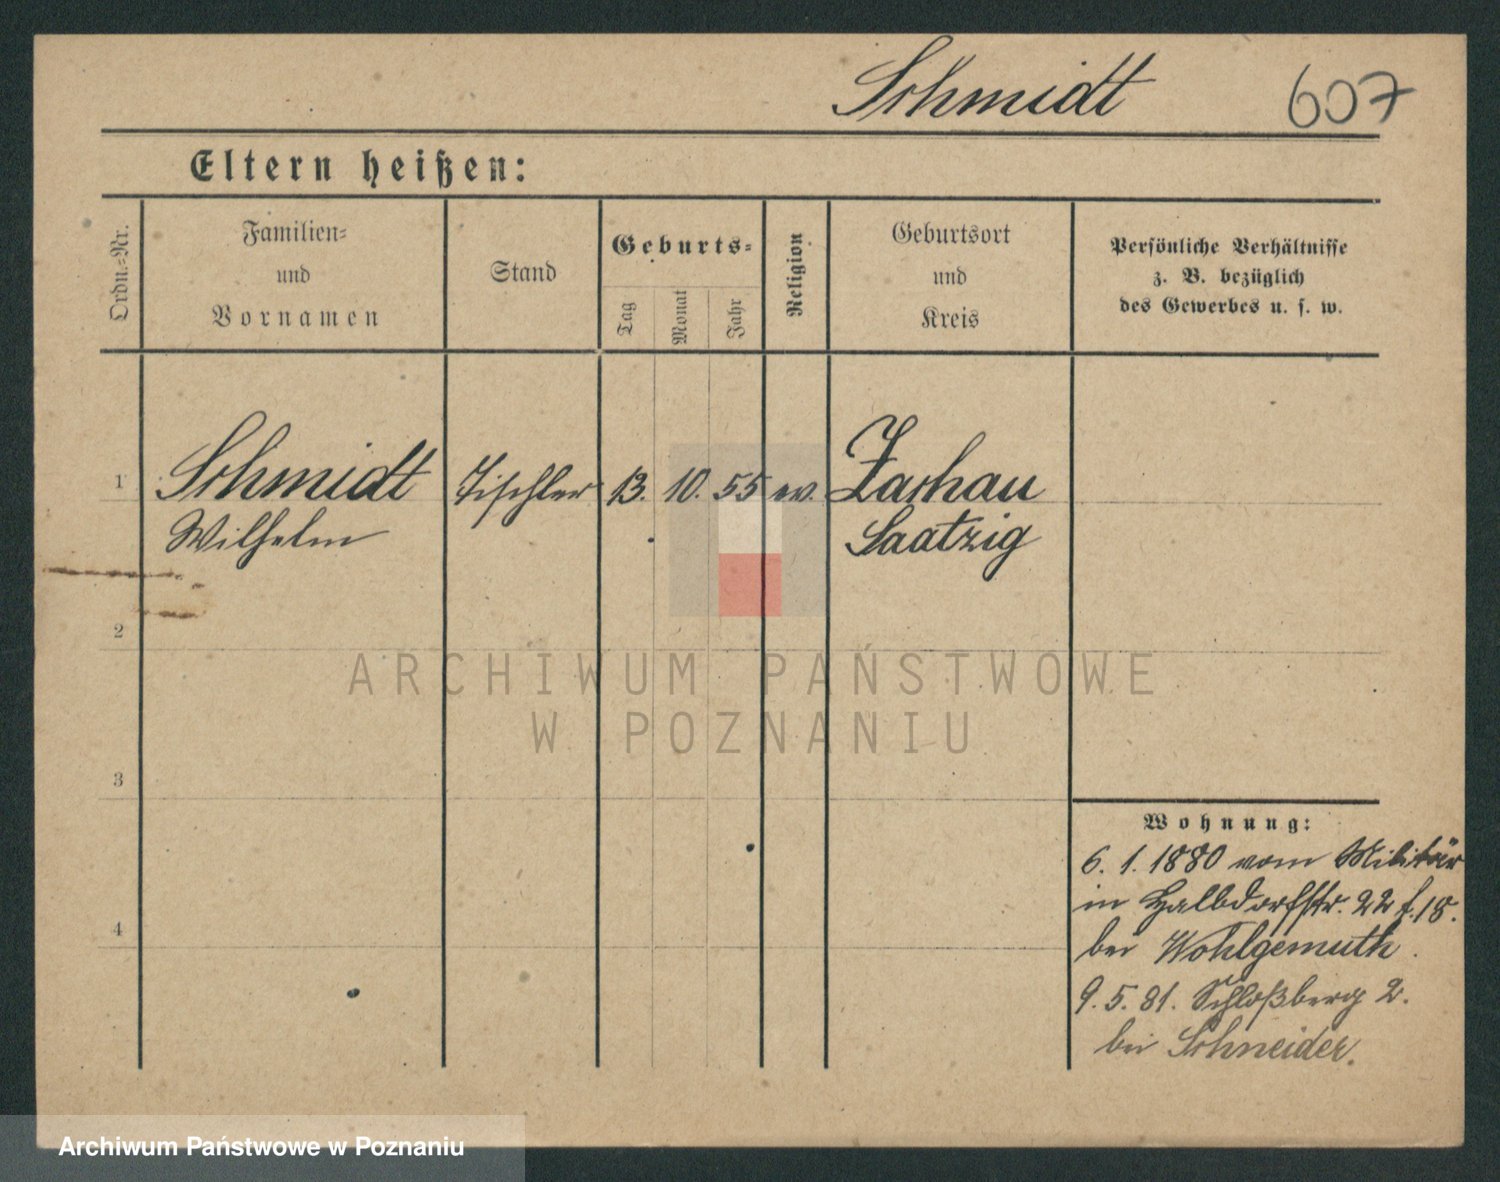 Schmidt 607
Eltern heißen:
Ordn.-Nr.
Familien-
und
Vornamen
Stand
Geburts-
Tag
Monat
Jahr
Religion
Geburtsort
und
Kreis
Persönliche Verhältnisse
z. B. bezüglich
des Gewerbes u. s. w.
1 Schmidt Tischler 13. 10. 55 ev. Zachau
Wilhelm Saatzig
2
3
4
Wohnung:
6. 1. 1880 vom Militär
in Halbdorfstr. 22 f. 18.
bei Wohlgemuth.
9. 5. 81. Schloßberg 2.
bei Schneider.
ARCHIWUM PAŃSTWOWE
W POZNANIU
Archiwum Państwowe w Poznaniu